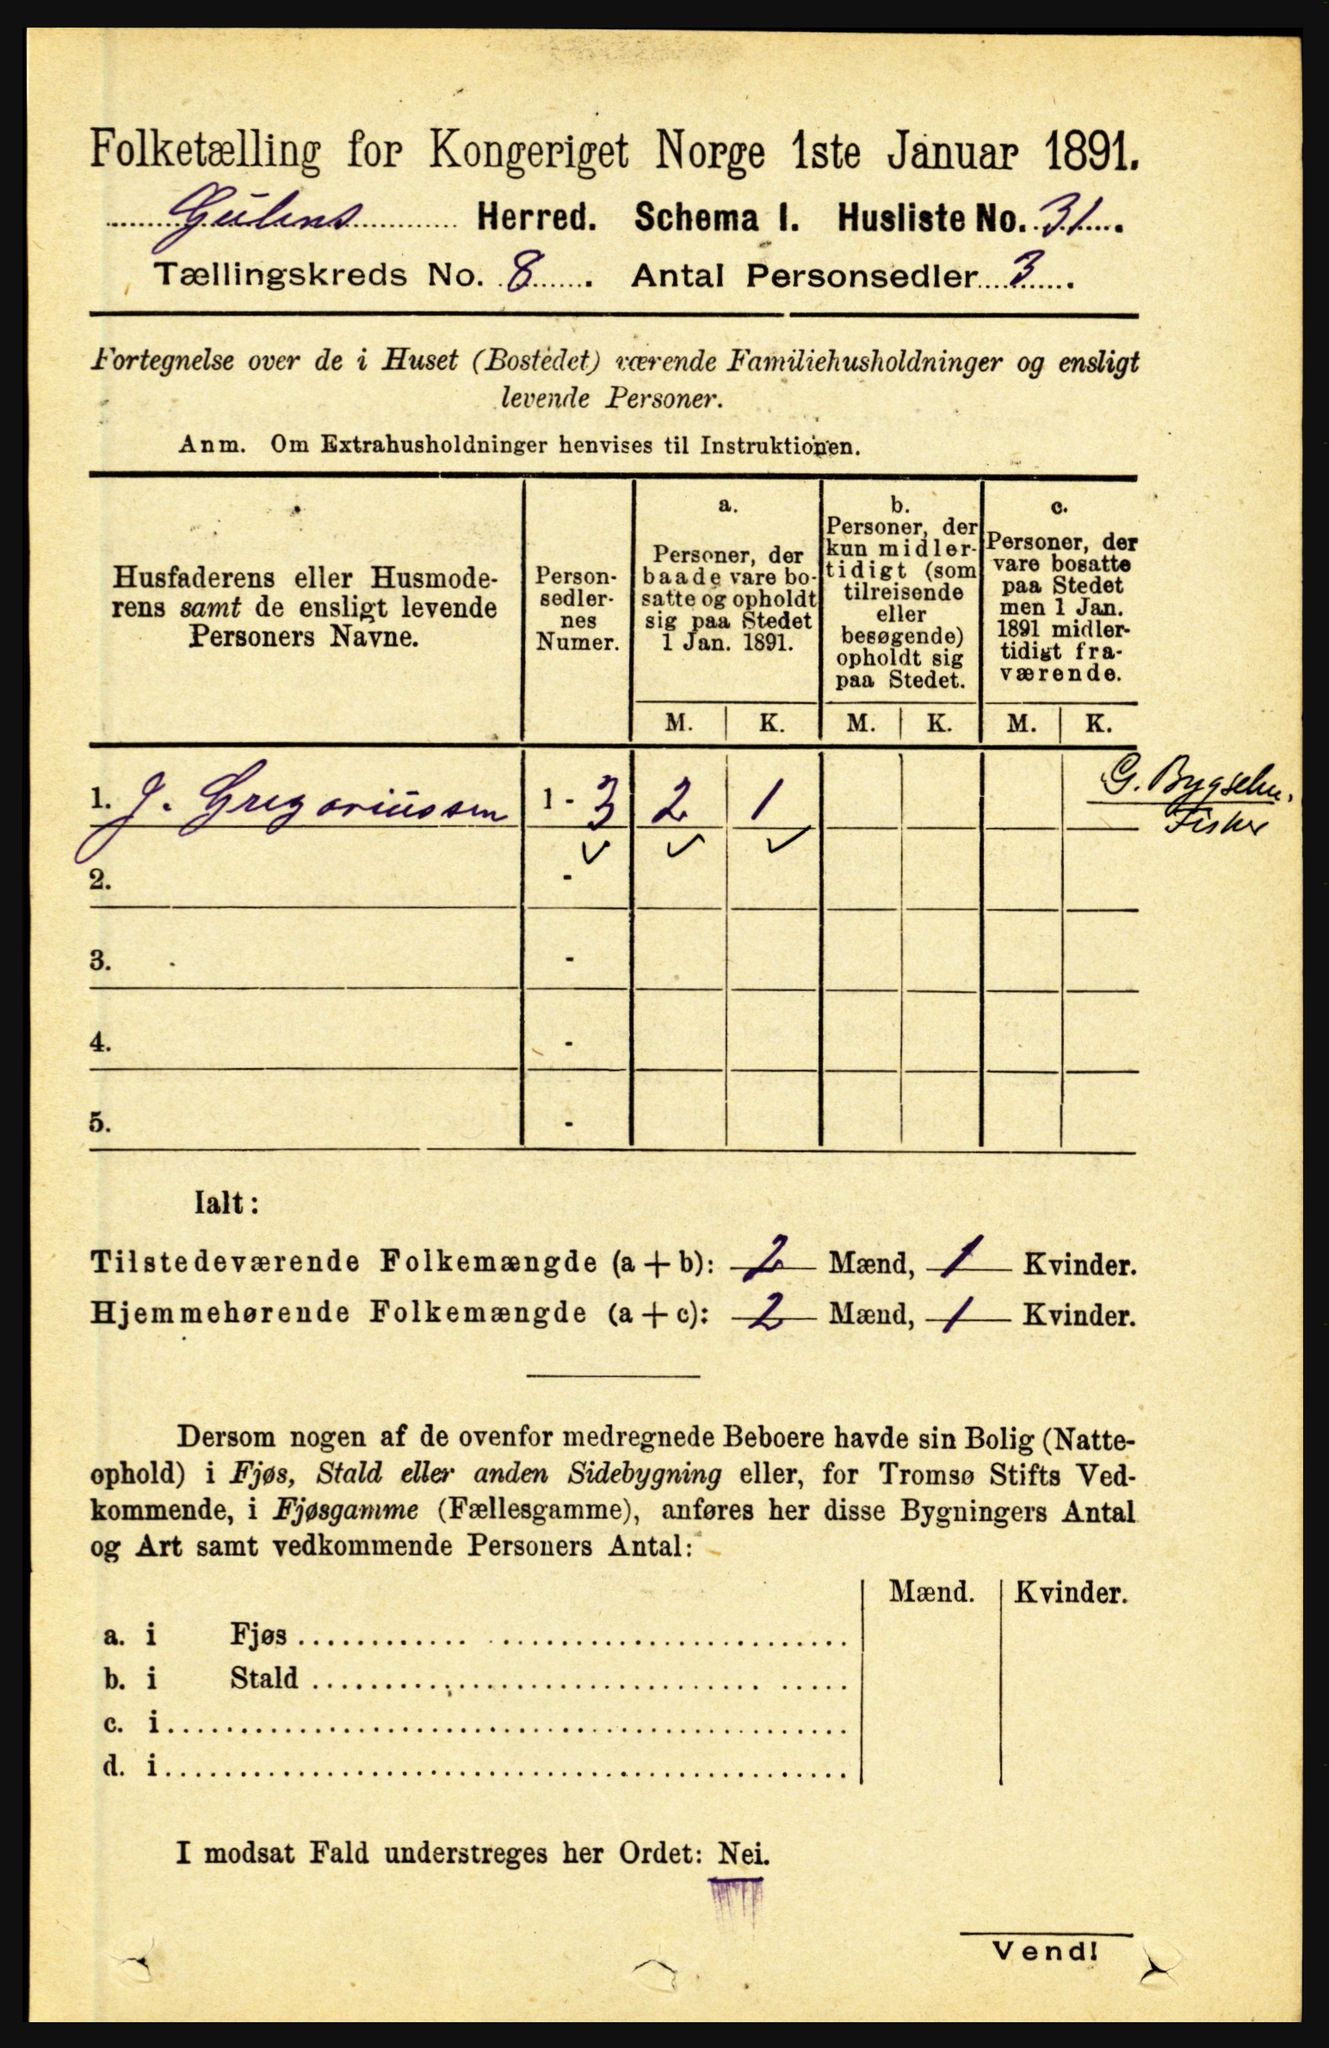 Folketælling for Kongeriget Norge 1ste Januar 1891.
Gulens Herred. Schema I. Husliste No. 31.
Tællingskreds No. 8. Antal Personsedler 3.
Fortegnelse over de i Huset (Bostedet) værende Familiehusholdninger og ensligt
levende Personer.
Anm. Om Extrahusholdninger henvises til Instruktionen.
Husfaderens eller Husmode-
rens samt de ensligt levende
Personers Navne.
Person-
sedler-
nes
Numer.
a.
Personer, der
baade vare bo-
satte og opholdt
sig paa Stedet
1 Jan. 1891.
b.
Personer, der
kun midler-
tidigt (som
tilreisende
eller
besøgende)
opholdt sig
paa Stedet.
c.
Personer, der
vare bosatte
paa Stedet
men 1 Jan.
1891 midler-
tidigt fra-
værende.
M. K. M. K. M. K.
1. J. Gregoriussen 1 - 3 2 1 G. Bygselm.
Fisker
2. -
3. -
4. -
5. -
Ialt:
Tilstedeværende Folkemængde (a + b): 2 Mænd, 1 Kvinder.
Hjemmehørende Folkemængde (a + c): 2 Mænd, 1 Kvinder.
Dersom nogen af de ovenfor medregnede Beboere havde sin Bolig (Natte-
ophold) i Fjøs, Stald eller anden Sidebygning eller, for Tromsø Stifts Ved-
kommende, i Fjøsgamme (Fællesgamme), anføres her disse Bygningers Antal
og Art samt vedkommende Personers Antal:
Mænd. Kvinder.
a. i Fjøs
b. i Stald
c. i
d. i
I modsat Fald understreges her Ordet: Nei.
Vend!